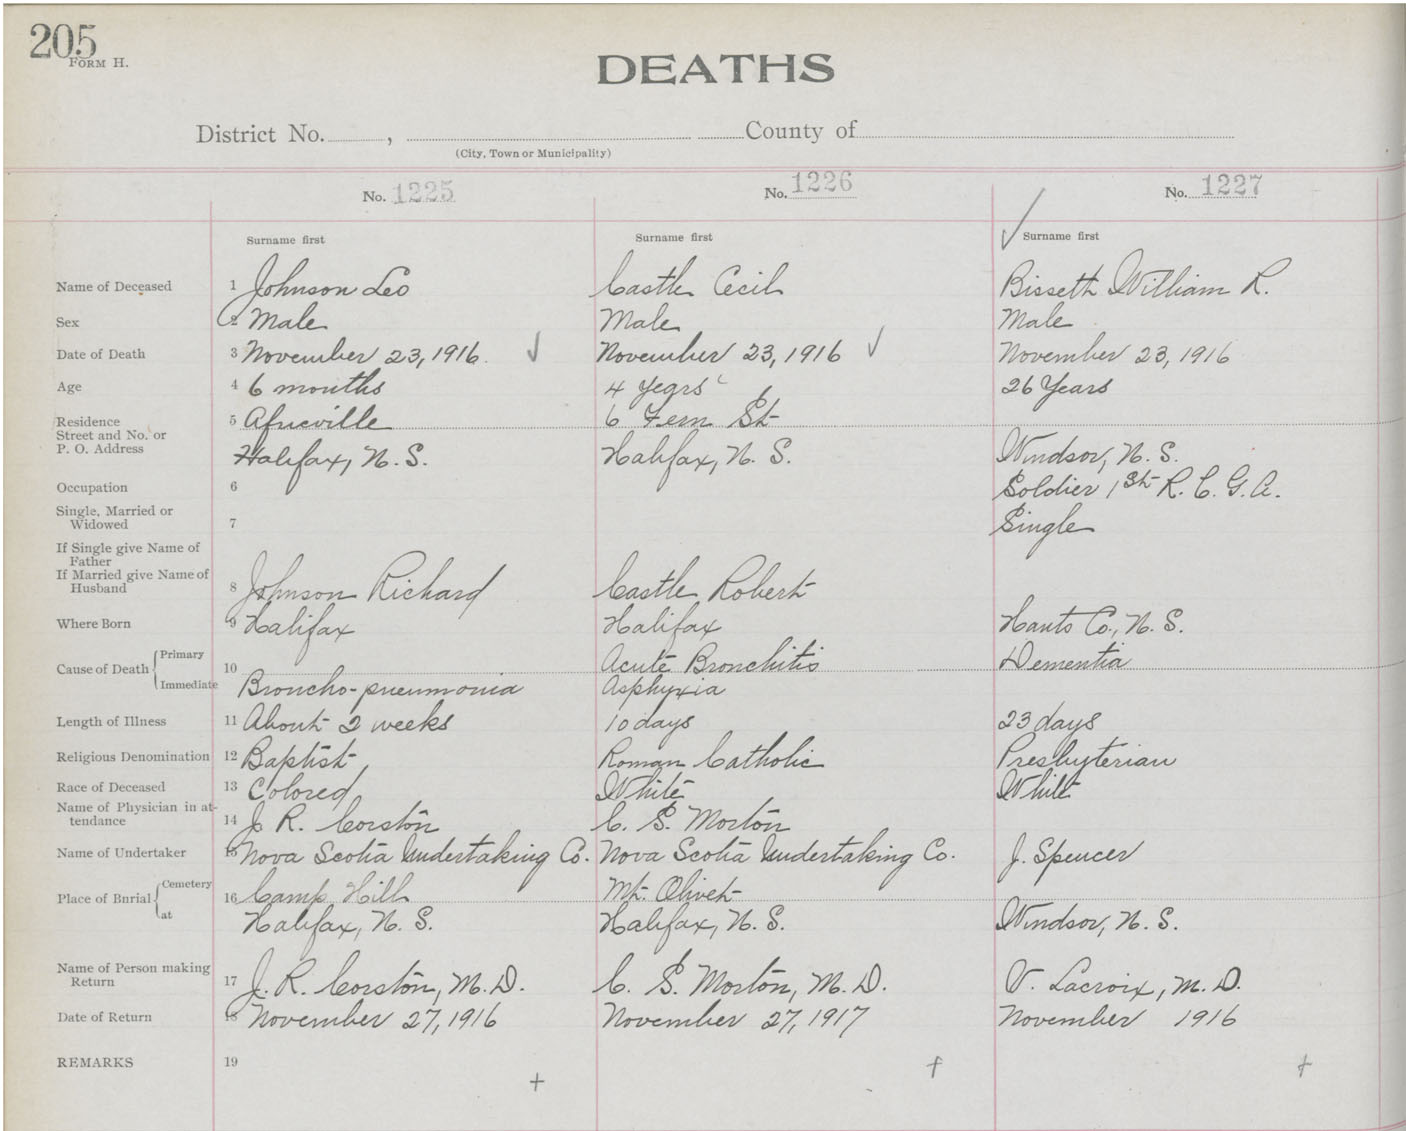 205
FORM H.
DEATHS
District No. , County of
(City, Town or Municipality)
No. 1225 No. 1226 No. 1227
Surname first Surname first Surname first
Name of Deceased 1 Johnson Leo Castle Cecil Bisseth William R.
Sex 2 Male Male Male
Date of Death 3 November 23, 1916 November 23, 1916 November 23, 1916
Age 4 6 months 4 years 26 Years
Residence 5 Africville 6 Fern St
Street and No. or
P. O. Address Halifax, N. S. Halifax, N. S. Windsor, N. S.
Occupation 6 Soldier 1st R. C. G. A.
Single, Married or
Widowed 7 Single
If Single give Name of
Father
If Married give Name of
Husband 8 Johnson Richard Castle Robert
Where Born 9 Halifax Halifax Hants Co., N. S.
Cause of Death Primary 10 Acute Bronchitis Dementia
Immediate Broncho-pneumonia Asphyxia
Length of Illness 11 About 2 weeks 10 days 23 days
Religious Denomination 12 Baptist Roman Catholic Presbyterian
Race of Deceased 13 Colored White White
Name of Physician in at-
tendance 14 J. R. Corston C. S. Morton
Name of Undertaker 15 Nova Scotia Undertaking Co. Nova Scotia Undertaking Co. J. Spencer
Place of Burial Cemetery 16 Camp Hill Mt. Olivet
at Halifax, N. S. Halifax, N. S. Windsor, N. S.
Name of Person making
Return 17 J. R. Corston, M. D. C. S. Morton, M. D. V. Lacroix, M. D.
Date of Return 18 November 27, 1916 November 27, 1917 November 1916
REMARKS 19